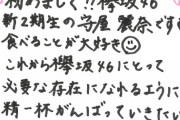 初めまして!!欅坂46
新2期生の守屋麗奈です
食べることが大好き☺
これから欅坂46にとって
必要な存在になれるように
精一杯がんばっていきたい